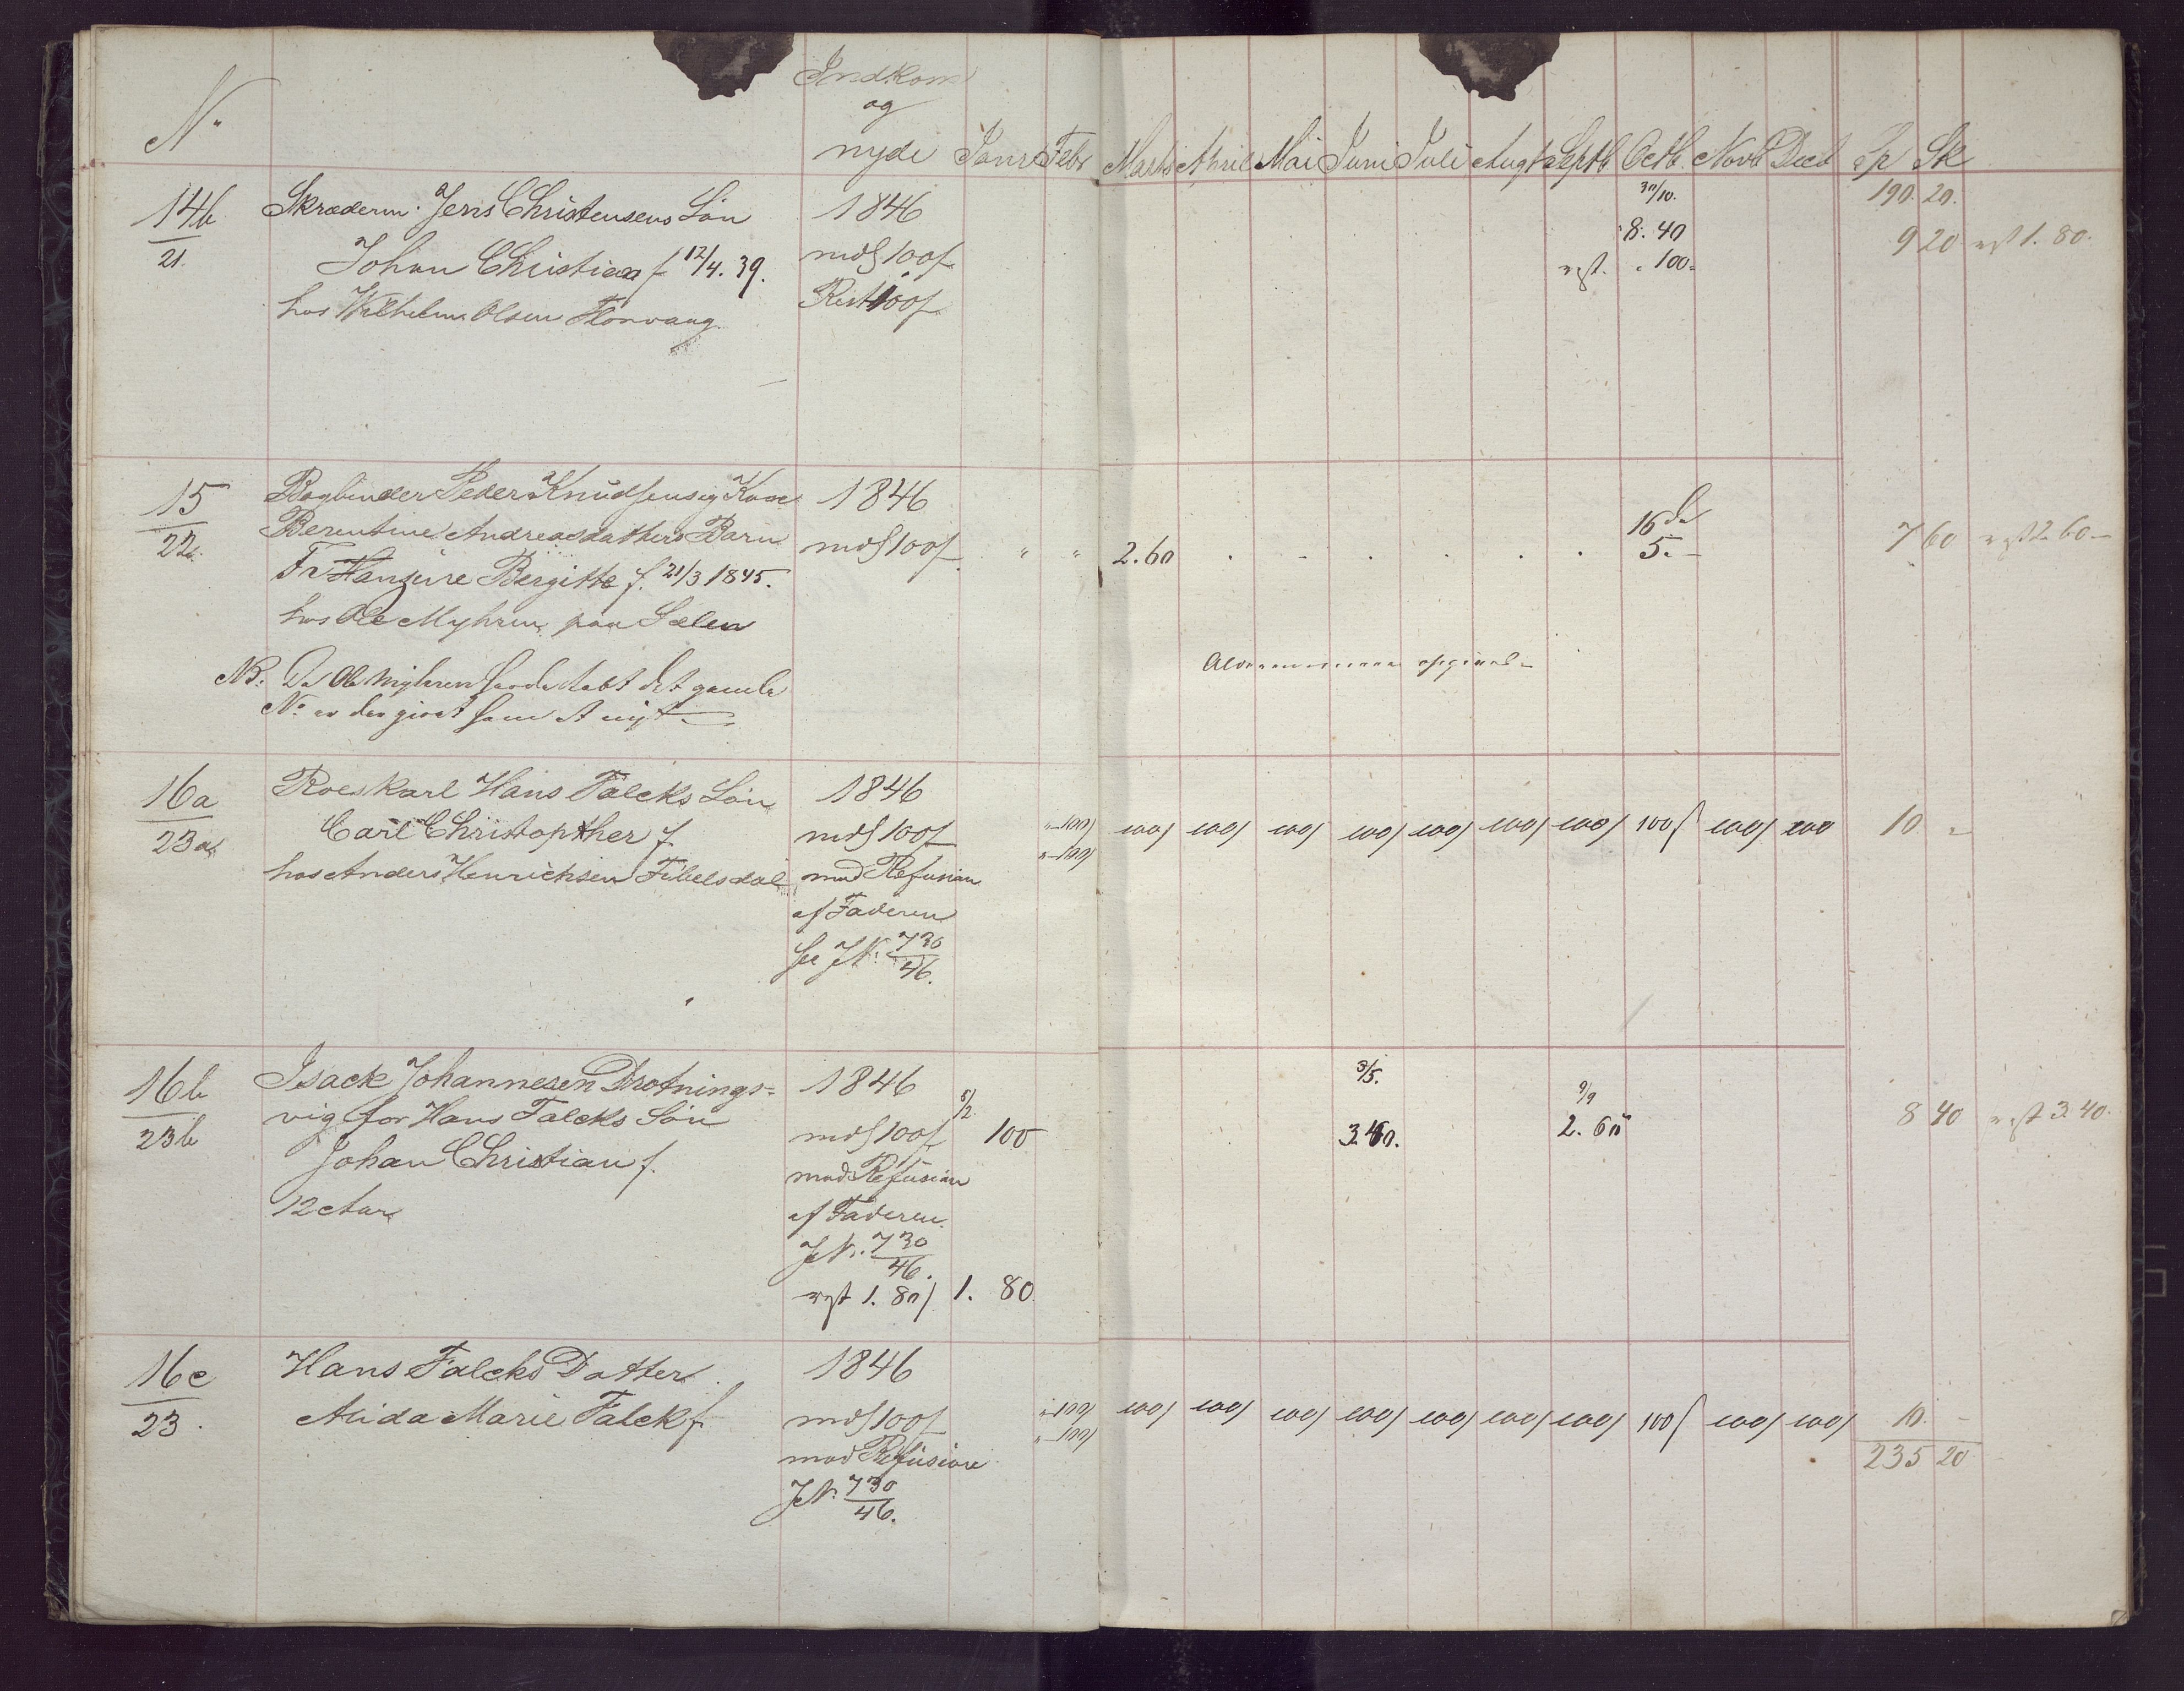 N.
Indkom
og
nyde Janr Febr Marts April Mai Juni Juli Augt Septb Octb. Novb Decb Sp Sk
190. 20.
14b
21.
Skræderm. Jens Christensens Sön
Johan Christian f 12/4. 39.
hos Wilhelm Olsen Florvaag.
1846
mdl 100f
Rest 100f
30/10.
8. 40
rest. " 100.
9 20 rest 1. 80.
15
22.
Bogbinder Peder Knudsen og Kone
Berentine Andreasdatters Barn
Hansine Bergitte f. 21/3 1845.
hos Ole Myhren paa Sælen
NB: Da Ole Myhren havde tabt det gamle
No er der givet ham et nyt
1846
mdl 100f
" " 2. 60
16 de
5. -
7 60 rest 2 60 -
16a
23a
Roeskarl Hans Falcks Sön
Carl Christopther f
hos Anders Henrichsen
1846
mdl 100f
mod Refusion
af Faderen
see JN. 730/46.
"-100f
"-100f
100f 100f 100f 100f 100f 100f 100f 100f 100f 100 10 "
16b
23b
Isack Johannesen Drotnings-
vig for Hans Falcks Sön
Johan Christian f.
12 Aar
1846
mdl 100f
mod Refusion
af Faderen.
JN. 730/46.
rest 1. 80f 1. 80.
5/2.
100
3/5.
3. 40.
9/9
2. 60
8 40 rest 3. 40.
16c
23.
Hans Falcks Datter.
Alida Marie Falck f.
1846
mdl 100f
mod Refusion
JN. 730/46.
"-100f
"-100f
100f 100f 100f 100f 100f 100f 100f 100f 100f 100f 10. -
235 20